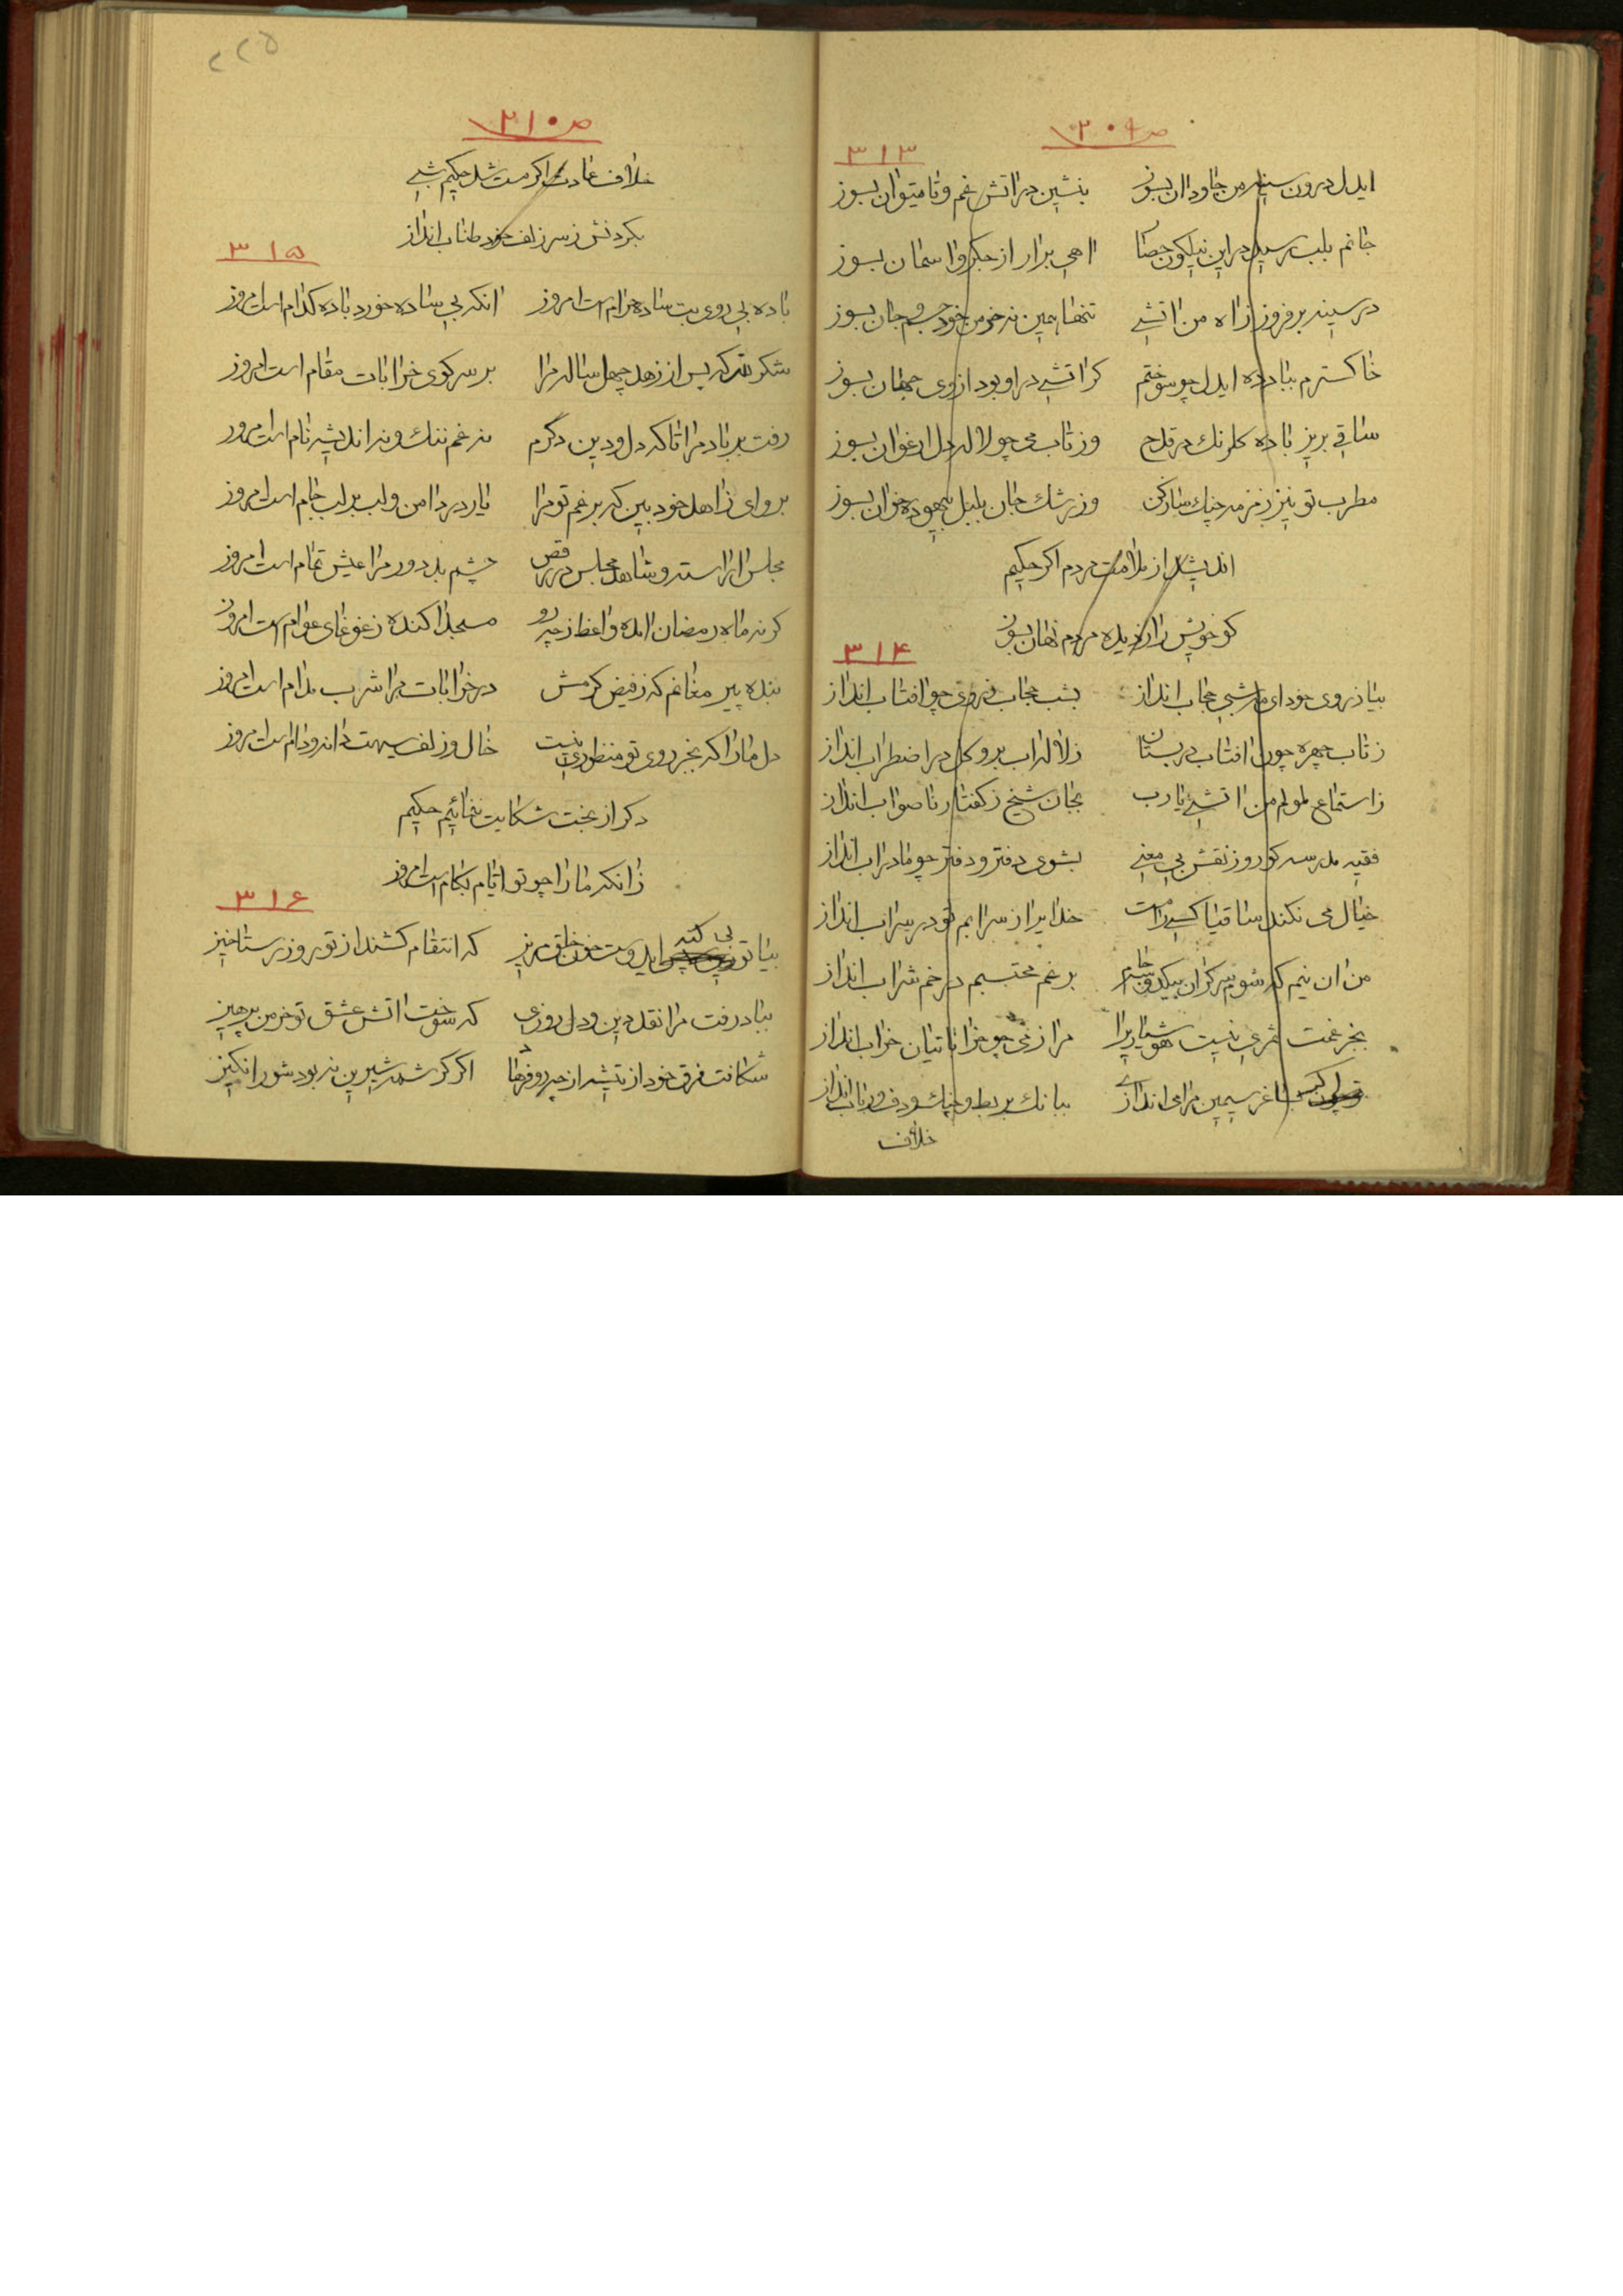 ص ۳۰۹
۳۱۳
ایدل درون سینه من جاودان بسوز بنشین در اتش غم و تا میتوان بسوز
جانم بلب رسید در این نیلکون حصار اهی برار از جکر و اسمان بسوز
در سینه برفروز ز اه من اتشی تنها همین نه خرمن خود جسم و جان بسوز
خاکسترم بباد ده ایدل چو سوختم کر اتشی در او بود از وی جهان بسوز
ساقی بریز باده کلرنک در قدح وز تاب می چو لاله دل ارغوان بسوز
مطرب تو نیز زمزمه چنک ساز کن وز رشک جان بلبل بیهوده خوان بسوز
اندیشد از ملامت مردم اکر حکیم
کو خویش را ز دیده مردم نهان بسوز
۳۱۴
بیا ز روی خود ای ماه شبی حجاب انداز بشب حجاب ز روی چو افتاب انداز
ز تاب چهره چون افتاب در بستان ز لاله اب برو کل در اضطراب انداز
ز استماع ملولم من اتشی یا رب بجان شیخ ز کفتار ناصواب انداز
فقیه مدرسه کو روز نقش بی معنی بشوی دفتر و دفتر چو ما در اب انداز
خیال می نکند ساقیا کسی را مست خدایرا ز سرابم تو در شراب انداز
من ان نیم که شوم سرکران بیکدو سه جام برغم محتسبم در خم شراب انداز
بجز غمت ثمری نیست هوشیاریرا مرا ز می چو خراباتیان خراب انداز
ساغر سیمین مرا می اندازی ببانک بربط و چنک و دف و رباب انداز
خلاف
۲۲۵
ص ۳۱۰
خلاف عادت اکر مست شد حکیم شبی
بکردنش ز سر زلف خود طناب انداز
۳۱۵
باده بی روی بت ساده حرام است امروز انکه بی ساده خورد باده کدام است امروز
شکر لله که پس از زهد چهل ساله مرا بر سر کوی خرابات مقام است امروز
رفت بر باد مرا تا که دل و دین دکرم نه غم ننک و نه اندیشه نام است امروز
برو ای زاهد خود بین که برغم تو مرا یار در دامن و لب بر لب جام است امروز
مجلس اراسته و شاهد مجلس در رقص چشم بد دور مرا عیش تمام است امروز
کر نه ماه رمضان امده واعظ ز چه رو مسجد اکنده ز غوغای عوام است امروز
بنده پیر مغانم که ز فیض کرمش در خرابات مرا شرب مدام است امروز
دل ما را که بجز روی تو منظوری نیست خال و زلف سیهت دانه و دام است امروز
دکر از بخت شکایت ننمائیم حکیم
زانکه ما را چو تو ایام بکام است امروز
۳۱۶
بیا تو بی کنه ایدوست خون خلق مریز که انتقام کشند از تو روز رستاخیز
بباد رفت مرا نقد دین و دل روزی که سوخت اتش عشق تو خرمن پرهیز
شکافت فرق خود از تیشه از چه رو فرهاد اکر کرشمه شیرین نه بود شورانکیز